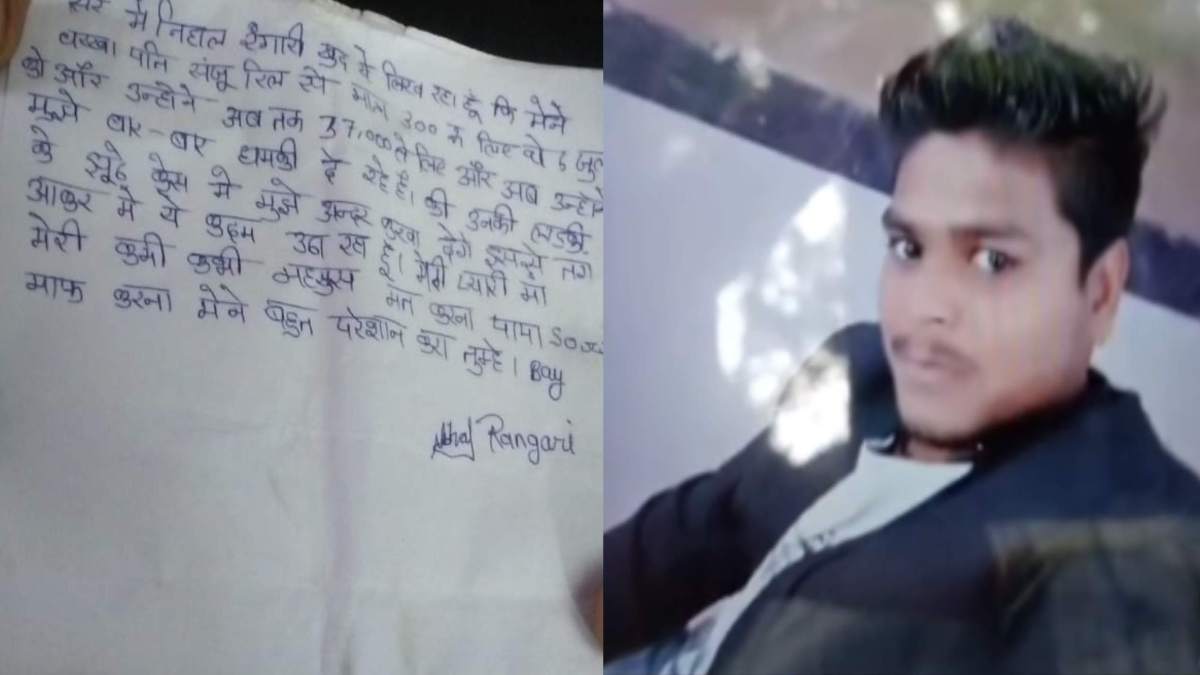 सर मैं निहाल रंगारी खुद ये लिख रहा हूँ कि मेने
पति संजू से मात्र 300 रु लिए थे 6 जुल
को और उन्होने अब तक 37,000 ले लिए और अब उन्होने
मुझे बार-बार धमकी दे रहे है। की उनकी लडकी
के झूठे केस मे मुझे अन्दर करवा देगे इसलिए तंग
आकर मे ये कदम उठा रहा हूँ। मेरी प्यारी माँ
मेरी कमी कभी महसूस मत करना पापा
माफ करना मेने बहुत परेशान करा तुम्हे। Bay
Rangari